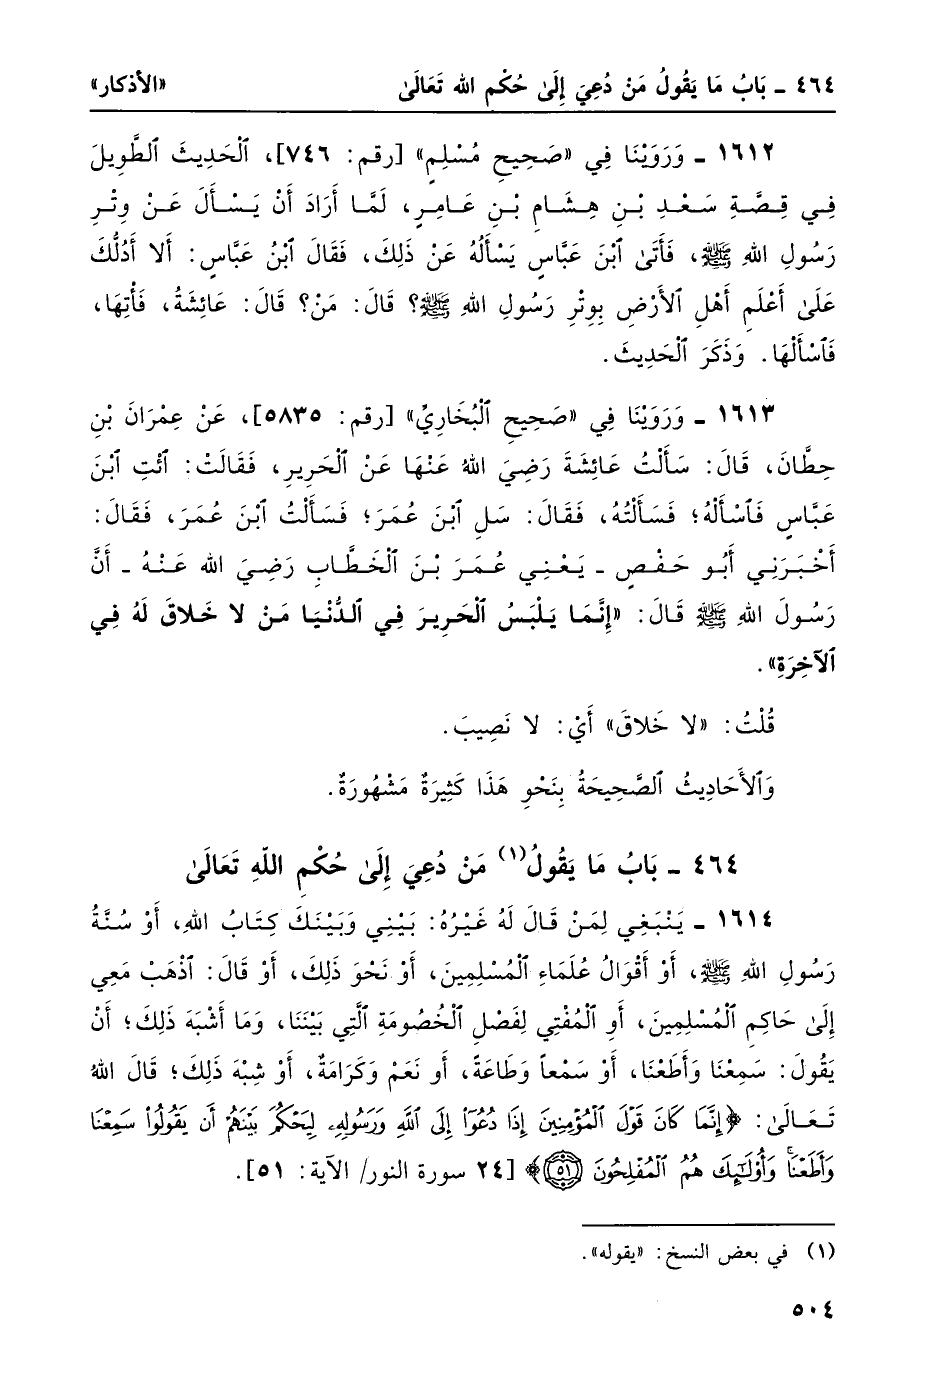 ٤٦٤ ـ بَابُ مَا يَقُولُ مَنْ دُعِيَ إِلَىٰ حُكْمِ الله تَعَالَىٰ «الأذكار»
١٦١٢ ـ وَرَوَيْنَا فِي «صَحِيحِ مُسْلِمٍ» [رقم: ٧٤٦]، ٱلْحَدِيثَ ٱلطَّوِيلَ
فِي قِصَّةِ سَعْدِ بْنِ هِشَامِ بْنِ عَامِرٍ، لَمَّا أَرَادَ أَنْ يَسْأَلَ عَنْ وِتْرِ
رَسُولِ اللهِ ﷺ، فَأَتَىٰ ٱبْنَ عَبَّاسٍ يَسْأَلُهُ عَنْ ذَلِكَ، فَقَالَ ٱبْنُ عَبَّاسٍ: أَلا أَدُلُّكَ
عَلَىٰ أَعْلَمِ أَهْلِ ٱلأَرْضِ بِوِتْرِ رَسُولِ اللهِ ﷺ؟ قَالَ: مَنْ؟ قَالَ: عَائِشَةُ، فَأْتِهَا،
فَٱسْأَلْهَا. وَذَكَرَ ٱلْحَدِيثَ.
١٦١٣ ـ وَرَوَيْنَا فِي «صَحِيحِ ٱلْبُخَارِيِّ» [رقم: ٥٨٣٥]، عَنْ عِمْرَانَ بْنِ
حِطَّانَ، قَالَ: سَأَلْتُ عَائِشَةَ رَضِيَ اللهُ عَنْهَا عَنْ ٱلْحَرِيرِ، فَقَالَتْ: ٱئْتِ ٱبْنَ
عَبَّاسٍ فَٱسْأَلْهُ؛ فَسَأَلْتُهُ، فَقَالَ: سَلِ ٱبْنَ عُمَرَ؛ فَسَأَلْتُ ٱبْنَ عُمَرَ، فَقَالَ:
أَخْبَرَنِي أَبُو حَفْصٍ ـ يَعْنِي عُمَرَ بْنَ ٱلْخَطَّابِ رَضِيَ الله عَنْهُ ـ أَنَّ
رَسُولَ اللهِ ﷺ قَالَ: «إِنَّمَا يَلْبَسُ ٱلْحَرِيرَ فِي ٱلدُّنْيَا مَنْ لا خَلاقَ لَهُ فِي
ٱلآخِرَةِ».
قُلْتُ: «لا خَلاقَ» أَيْ: لا نَصِيبَ.
وَٱلأَحَادِيثُ ٱلصَّحِيحَةُ بِنَحْوِ هَذَا كَثِيرَةٌ مَشْهُورَةٌ.
٤٦٤ ـ بَابُ مَا يَقُولُ(١) مَنْ دُعِيَ إِلَىٰ حُكْمِ اللّهِ تَعَالَىٰ
١٦١٤ ـ يَنْبَغِي لِمَنْ قَالَ لَهُ غَيْرُهُ: بَيْنِي وَبَيْنَكَ كِتَابُ اللهِ، أَوْ سُنَّةُ
رَسُولِ اللهِ ﷺ، أَوْ أَقْوَالُ عُلَمَاءِ ٱلْمُسْلِمِينَ، أَوْ نَحْوَ ذَلِكَ، أَوْ قَالَ: ٱذْهَبْ مَعِي
إِلَىٰ حَاكِمِ ٱلْمُسْلِمِينَ، أَوِ ٱلْمُفْتِي لِفَصْلِ ٱلْخُصُومَةِ ٱلَّتِي بَيْنَنَا، وَمَا أَشْبَهَ ذَلِكَ؛ أَنْ
يَقُولَ: سَمِعْنَا وَأَطَعْنَا، أَوْ سَمْعاً وَطَاعَةً، أَو نَعَمْ وَكَرَامَةٌ، أَوْ شِبْهَ ذَلِكَ؛ قَالَ اللهُ
تَعَالَىٰ: ﴿إِنَّمَا كَانَ قَوْلَ ٱلْمُؤْمِنِينَ إِذَا دُعُوٓاْ إِلَى ٱللَّهِ وَرَسُولِهِۦ لِيَحْكُمَ بَيْنَهُمْ أَن يَقُولُواْ سَمِعْنَا
وَأَطَعْنَاۚ وَأُوْلَٰٓئِكَ هُمُ ٱلْمُفْلِحُونَ ٥١﴾ [٢٤ سورة النور/ الآية: ٥١].
(١) في بعض النسخ: «يقوله».
٥٠٤